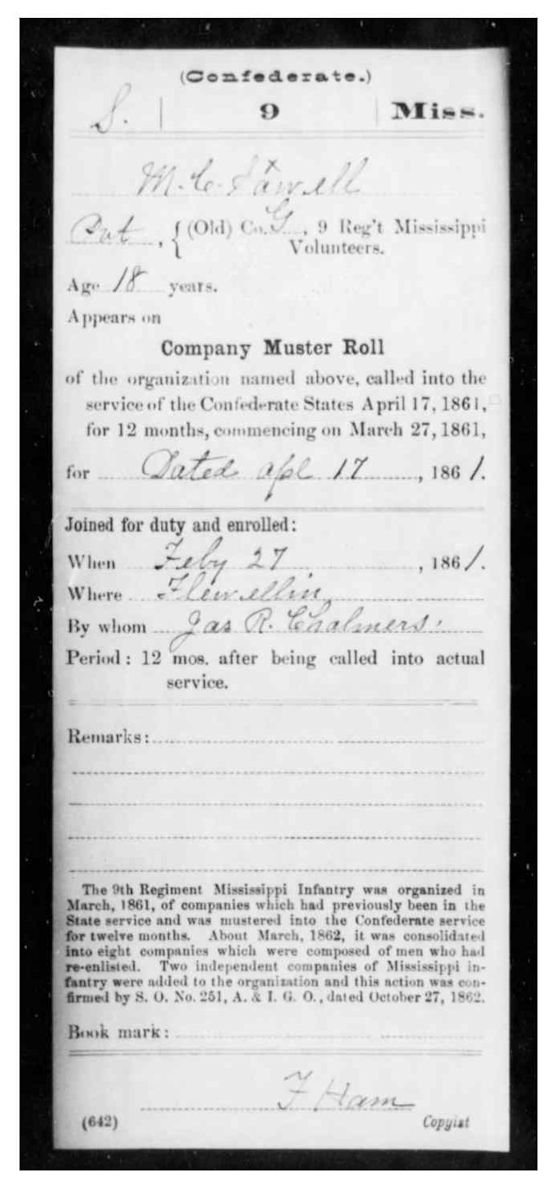 (Confederate.)
S. | 9 | Miss.
M. C.
Pvt, { (Old) Co. G, 9 Reg't Mississippi
Volunteers.
Age 18 years.
Appears on
Company Muster Roll
of the organization named above, called into the
service of the Confederate States April 17, 1861,
for 12 months, commencing on March 27, 1861,
for Dated Apl 17, 1861.
Joined for duty and enrolled:
When Feby 27, 1861.
Where Flewellin
By whom Jas R. Chalmers.
Period: 12 mos. after being called into actual
service.
Remarks:
The 9th Regiment Mississippi Infantry was organized in
March, 1861, of companies which had previously been in the
State service and was mustered into the Confederate service
for twelve months. About March, 1862, it was consolidated
into eight companies which were composed of men who had
re-enlisted. Two independent companies of Mississippi in-
fantry were added to the organization and this action was con-
firmed by S. O. No. 251, A. & I. G. O., dated October 27, 1862.
Book mark:
F Ham
(642) Copyist